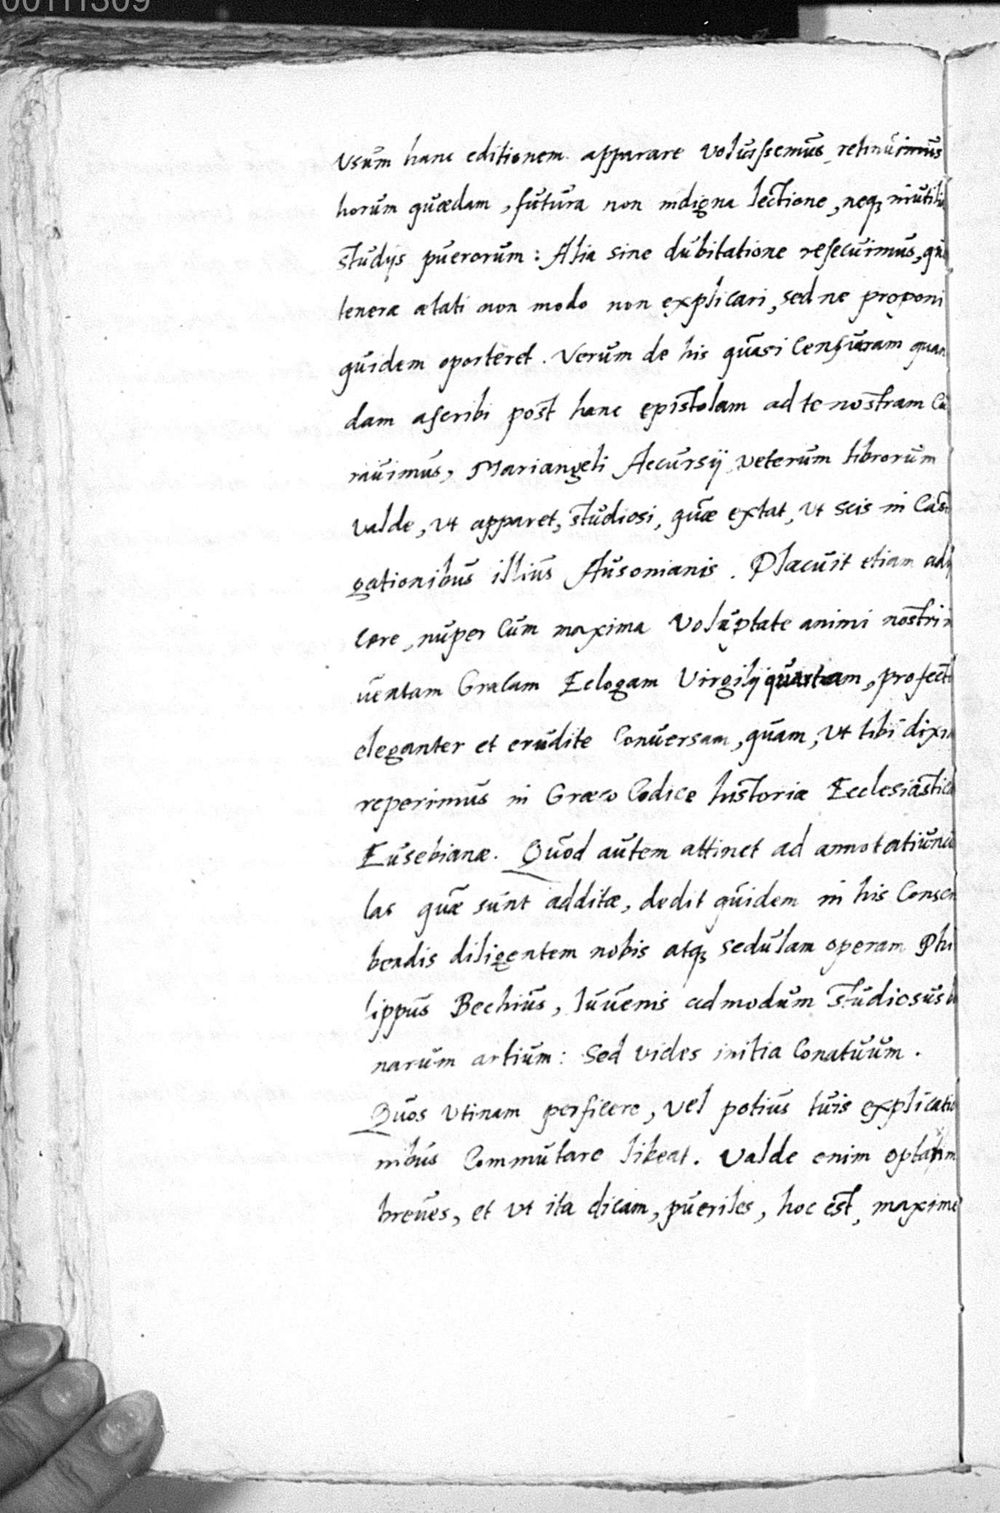 00111309
Vsum hanc editionem apparare voluissemus, retinuimus
horum quædam, futura non indigna lectione, neq; inutilia
studijs puerorum: Alia sine dubitatione resecuimus, quæ
teneræ ætati non modo non explicari, sed ne proponi
quidem oporteret. Verum de his quasi Censuram quan
dam ascribi post hanc epistolam ad te nostram Cu
rauimus, Mariangeli Accursij, veterum librorum
valde, vt apparet, studiosi, quæ extat, vt scis in Cas
gationibus illius Ausonianis. Placuit etiam adij
cere, nuper Cum maxima Voluptate animi nostri in
uentam Græcam Eclogam Virgilij quartam, profecto
eleganter et erudite Conuersam, quam, vt tibi dixi
reperimus in Græco Codice historiæ Ecclesiastica
Eusebianæ. Quod autem attinet ad annotatiuncu
las quæ sunt additæ, dedit quidem in his Conscri
bendis diligentem nobis atq; sedulam operam Phi
lippus Bechius, Iuuenis admodum studiosus bo
narum artium: Sed vides initia Conatuum.
Quos vtinam perficere, vel potius tuis explicatio
nibus Commutare libeat. Valde enim optarim
breues, et vt ita dicam, pueriles, hoc est, maxime